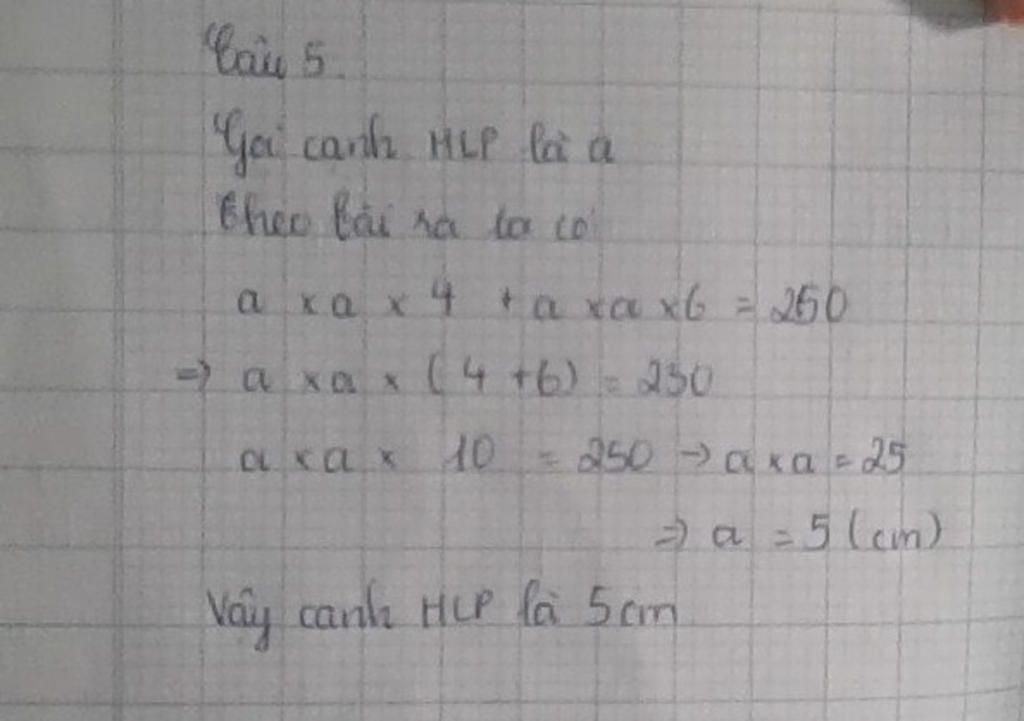 Câu 5.
Gọi cạnh HLP là a
Theo bài ra ta có
a x a x 4 + a x a x 6 = 250
=> a x a x (4 + 6) = 250
a x a x 10 = 250 -> a x a = 25
=> a = 5 (cm)
Vậy cạnh HLP là 5cm